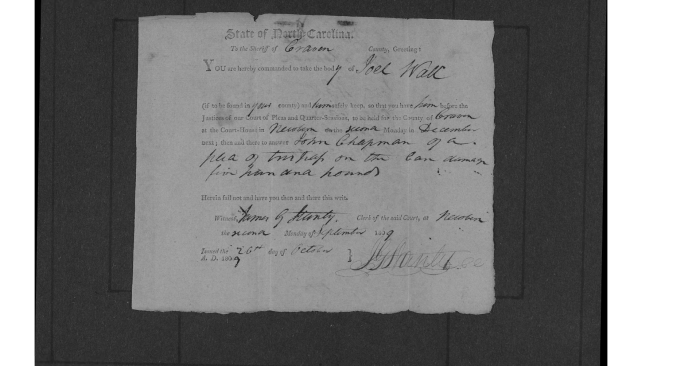 State of North Carolina.
To the Sheriff of Craven County, Greeting:
YOU are hereby commanded to take the body of Joel Wall
(if to be found in your county) and him safely keep, so that you have him before the
Justices of our Court of Pleas and Quarter-Sessions, to be held for the County of Craven
at the Court-House in Newbern on the second Monday in December
next; then and there to answer John Chapman of a
plea of trespass on the Case damage
five hundred pounds
Herein fail not and have you then and there this writ.
Witness, James G Stanly, Clerk of the said Court, at Newbern
the second Monday of September 18 9
Issued the 26th day of October
A. D. 18 9
J G Stanly